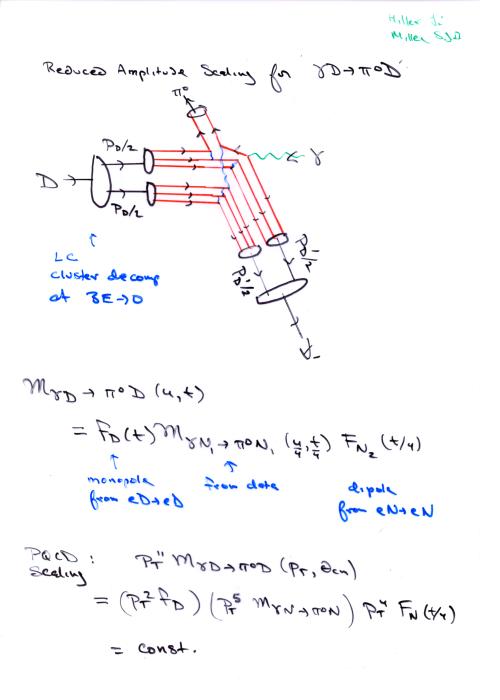 Hiller Ji
Miller SJB
Reduced Amplitude Scaling for γD→π°D
π°
P_D/2
γ
D
P_D/2
LC
cluster decomp
at BE→0
P_D'/2
P_D'/2
M_γD→π°D (u,t)
= f_D(t) M_γN₁→π°N₁ (u/4, t/4) F_N₂ (t/4)
↑ ↑
monopole from data dipole
from eD→eD from eN→eN
PQCD Scaling: P_T¹¹ M_γD→π°D (P_T, θ_cm)
= (P_T² f_D) (P_T⁵ M_γN→π°N) P_T⁴ F_N(t/4)
= const.